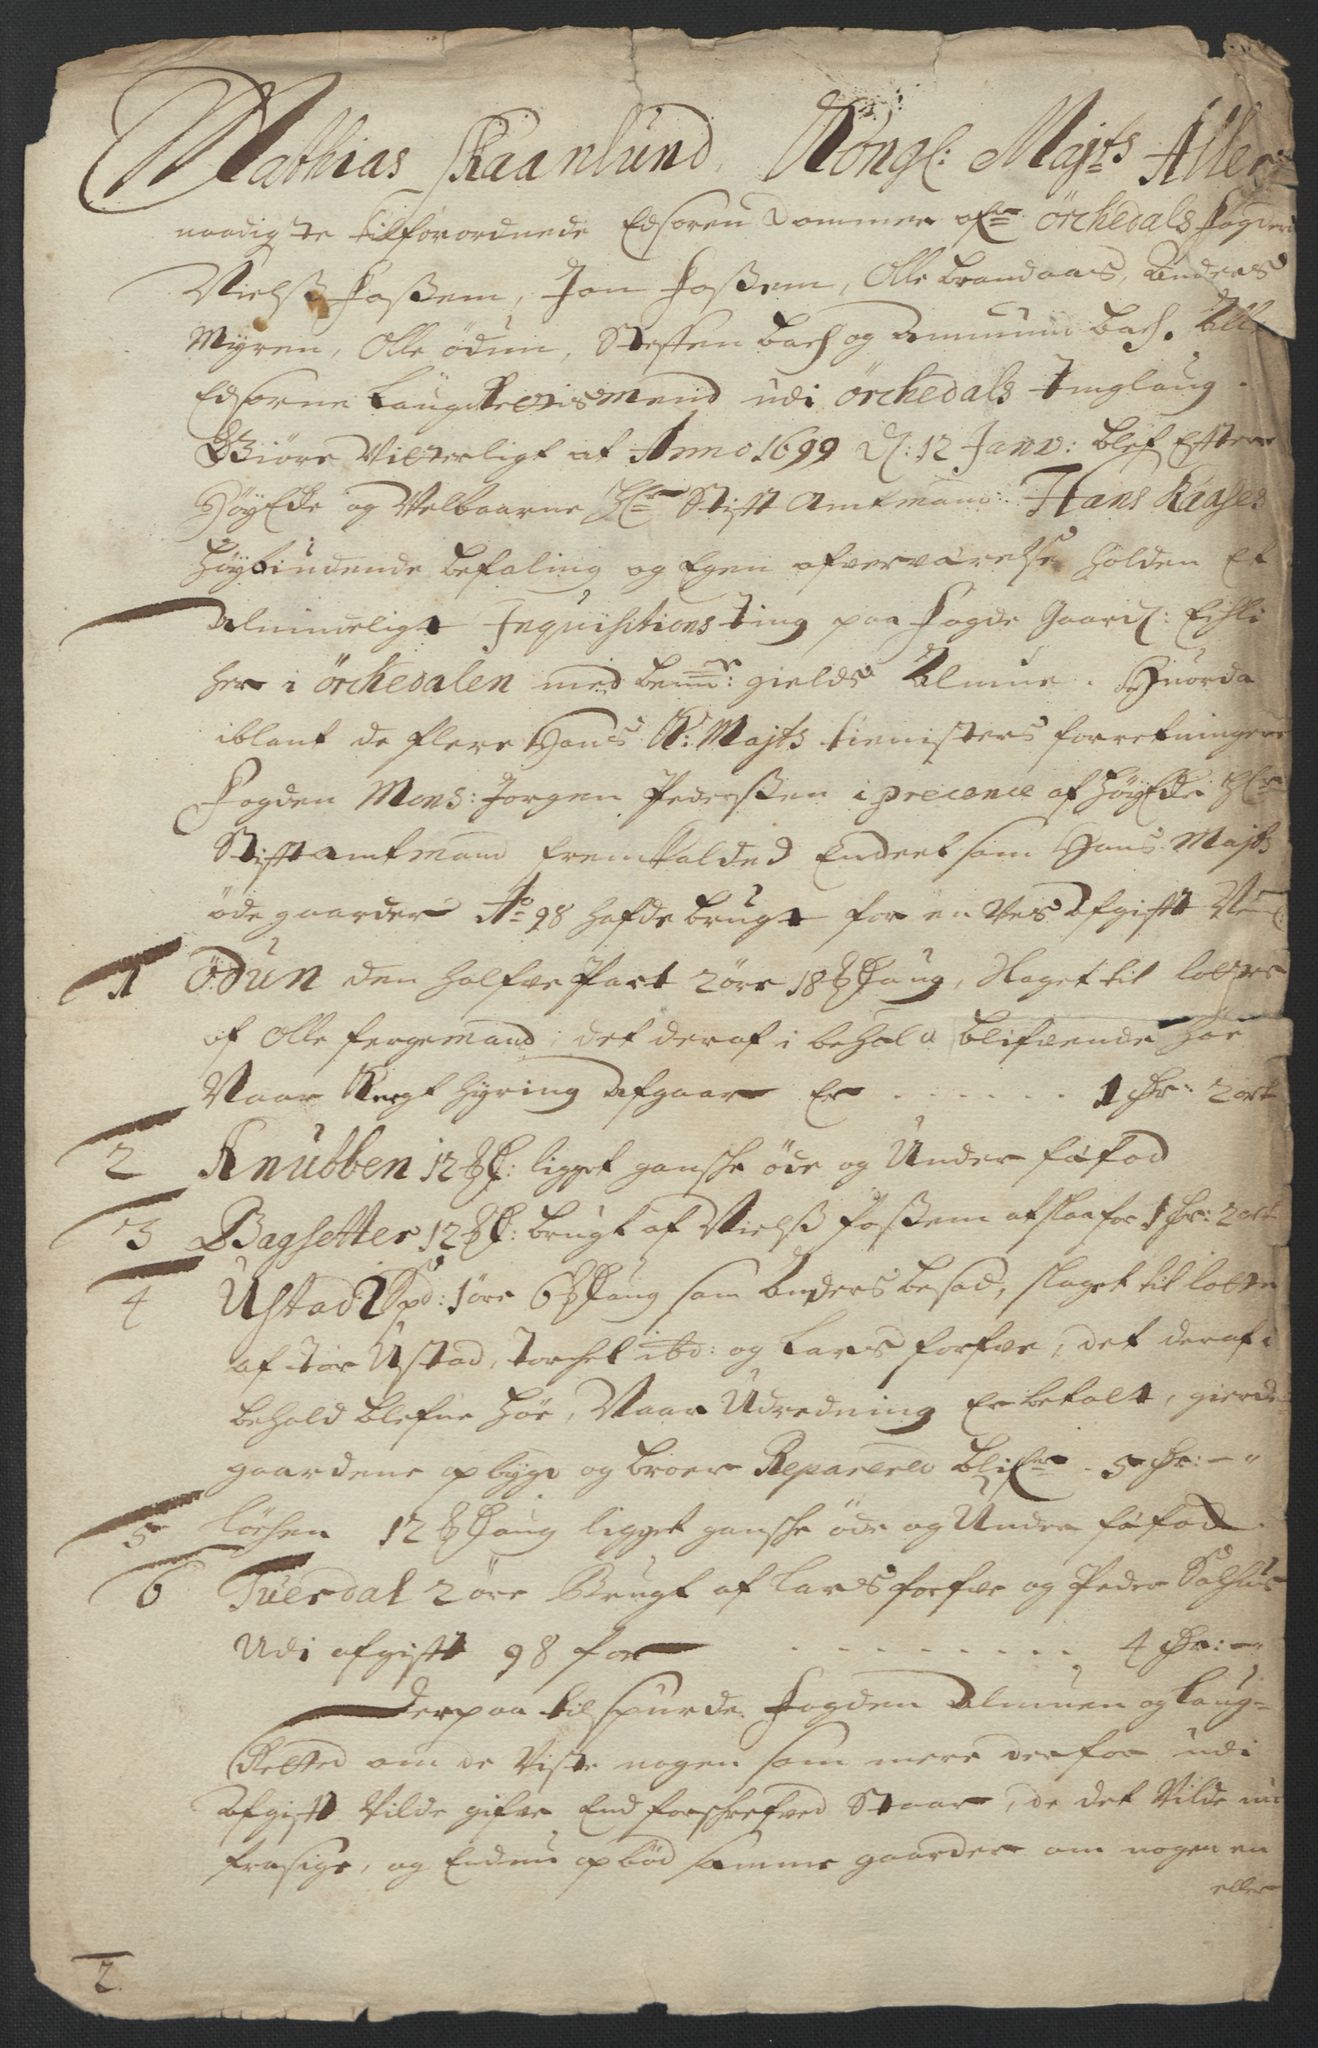 Mathias Skaanlund, Kongl: Majts Aller
naadigste tilforordnede Edsoren Dommer ofr Örchedals Fogderi
Nielß Foßem, Jon Foßem, Olle Brandaas, Anders
Myren, Olle ödun, Steffen bach og Ammund bach. Alle
Edsorne Laugrettismend udi Örchedals Tinglaug.
Giöre Vitterligt at Anno 1699 D: 12 Janv: blef Efter
HöyEdle og Velbaarne Hr Stift Amtmand Hans Kaases
höybiudende befaling og Egen ofverværelse holden Et
Almindeligt Inquisitions Ting paa Fogde Gaard: Eihli
her i Örchedalen med bemte: gields Almue. Huorda
iblant de flere Hans K: Majts tienisters forretninger
Fogden Mons: Jorgen Pederßen i precence af HöyEdle Hr
Stiftamtmand fremkalded Endeel som Hans Majts
öde gaarder Ao 98 hafde brugt for en Vis Afgift
1 Ödun den halfve Part 2 öre 18 Laug, slaget til lotters
af Olle fergemand, det deraf i behold blifvende höe
Naar Kregt hyring Afgaar Er . . . . . . 1 Dr: 2 ort
2 Knubben 12 : ligget gansche öde og Under fæfod
3 Bagsetter 12 : brugt af Nielß Foßem afslaa for 1 Dr: 2 ort
4 Ustad 2 Spd: 1 öre 6 Laug som Anders besad, slaget til lotte
af Tör Ustad, Torchel ibd: og Lars forfve, det deraf i
behold blefne höe, Naar Udredning Er betalt, gierde
gaardene opbygt og broer Reparered blifr . 5 Dr: – "
5 Löchen 12 Laug ligget gansche öde og Under fæfod.
6 Tuerdal 2 öre Brugt af Lars forfve og Peder Solhus
Udi afgift 98 for . . . . . . . . . . 4 Dr: – "
Derpaa tilspurde Fogden Almuen og Laug-
Retted om de Viste nogen som mere derfor udi
Afgift Vilde gifve End forschrefved Staar, de det Vilde nu
frasige, og Endnu opböd samme gaarder om nogen en
eller
2